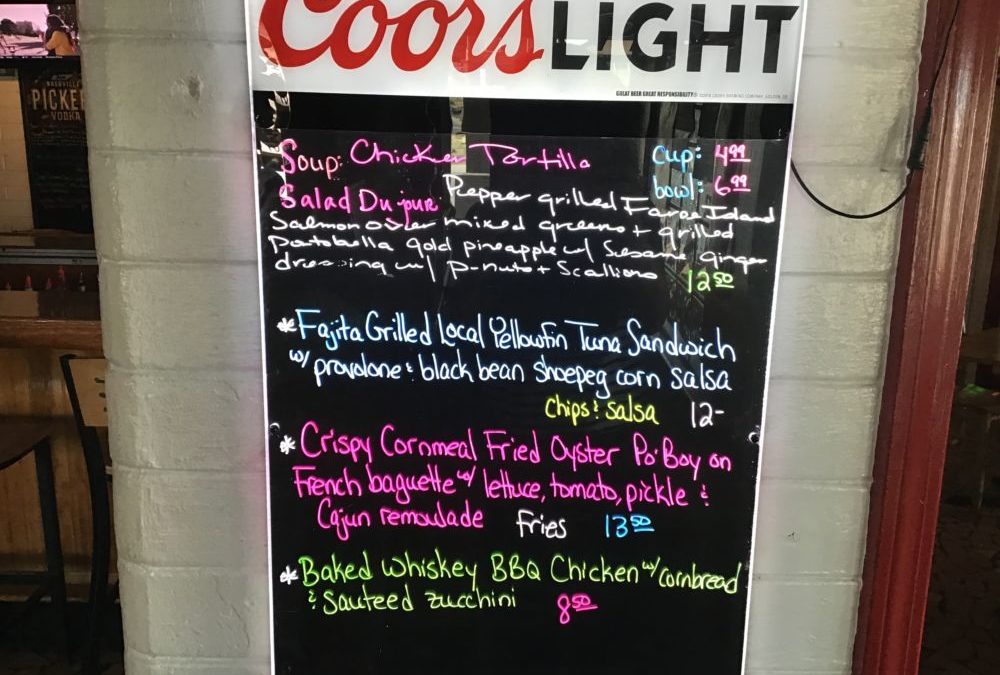 Coors LIGHT
GREAT BEER GREAT RESPONSIBILITY®
NASHVILLE
PICKERS
VODKA
Soup: Chicken Tortilla Cup: 4.99
bowl: 6.99
Salad Du jour Pepper grilled Faroe Island
Salmon over mixed greens + grilled
portobella gold pineapple w/ Sesame ginger
dressing w/ p-nuts + Scallions 12.50
*Fajita Grilled Local Yellowfin Tuna Sandwich
w/ provolone & black bean shoepeg corn salsa
Chips & Salsa 12-
*Crispy Cornmeal Fried Oyster Po-Boy on
French baguette w/ lettuce, tomato, pickle &
Cajun remoulade Fries 13.50
*Baked Whiskey BBQ Chicken w/ cornbread
& Sauteed zucchini 8.50